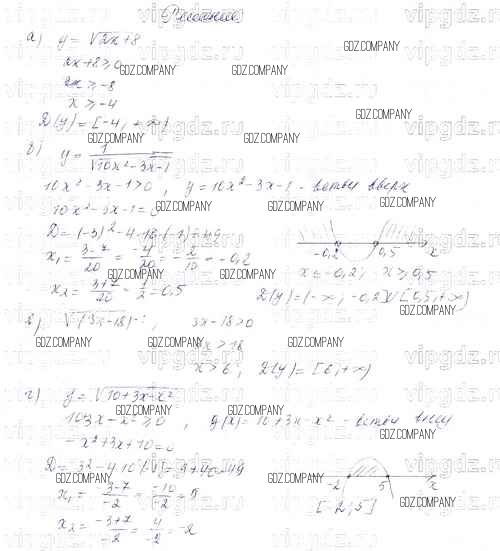 Решение
а) y = √2x+8
2x+8≥0
2x ≥ -8
x ≥ -4
D(y) = [-4; +∞)
б) y = 1/√10x²-3x-1
10x²-3x-1>0, y = 10x²-3x-1 - ветви вверх
10x²-3x-1=0
D = (-3)²-4·10·(-1)=49
x₁ = 3-7/20 = -4/20 = -2/10 = -0,2
-0,2 0,5 x
x ≤ -0,2; x ≥ 0,5
x₂ = 3+7/20 = 1/2 = 0,5
D(y)=(-∞; -0,2]∪[0,5;+∞)
в) √(3x-18)⁻¹; 3x-18>0
3x > 18
x > 6; D(y) = [6;+∞)
г) y = √10+3x-x²
10+3x-x² ≥0, g(x)=10+3x-x² - ветви вниз
-x²+3x+10=0
D = 3²-4·10·(-1)=9+40=49
x₁ = -3-7/-2 = -10/-2 = 5
-2 5 x
[-2; 5]
x₂ = -3+7/-2 = 4/-2 = -2
GDZ.COMPANY
vipgdz.ru